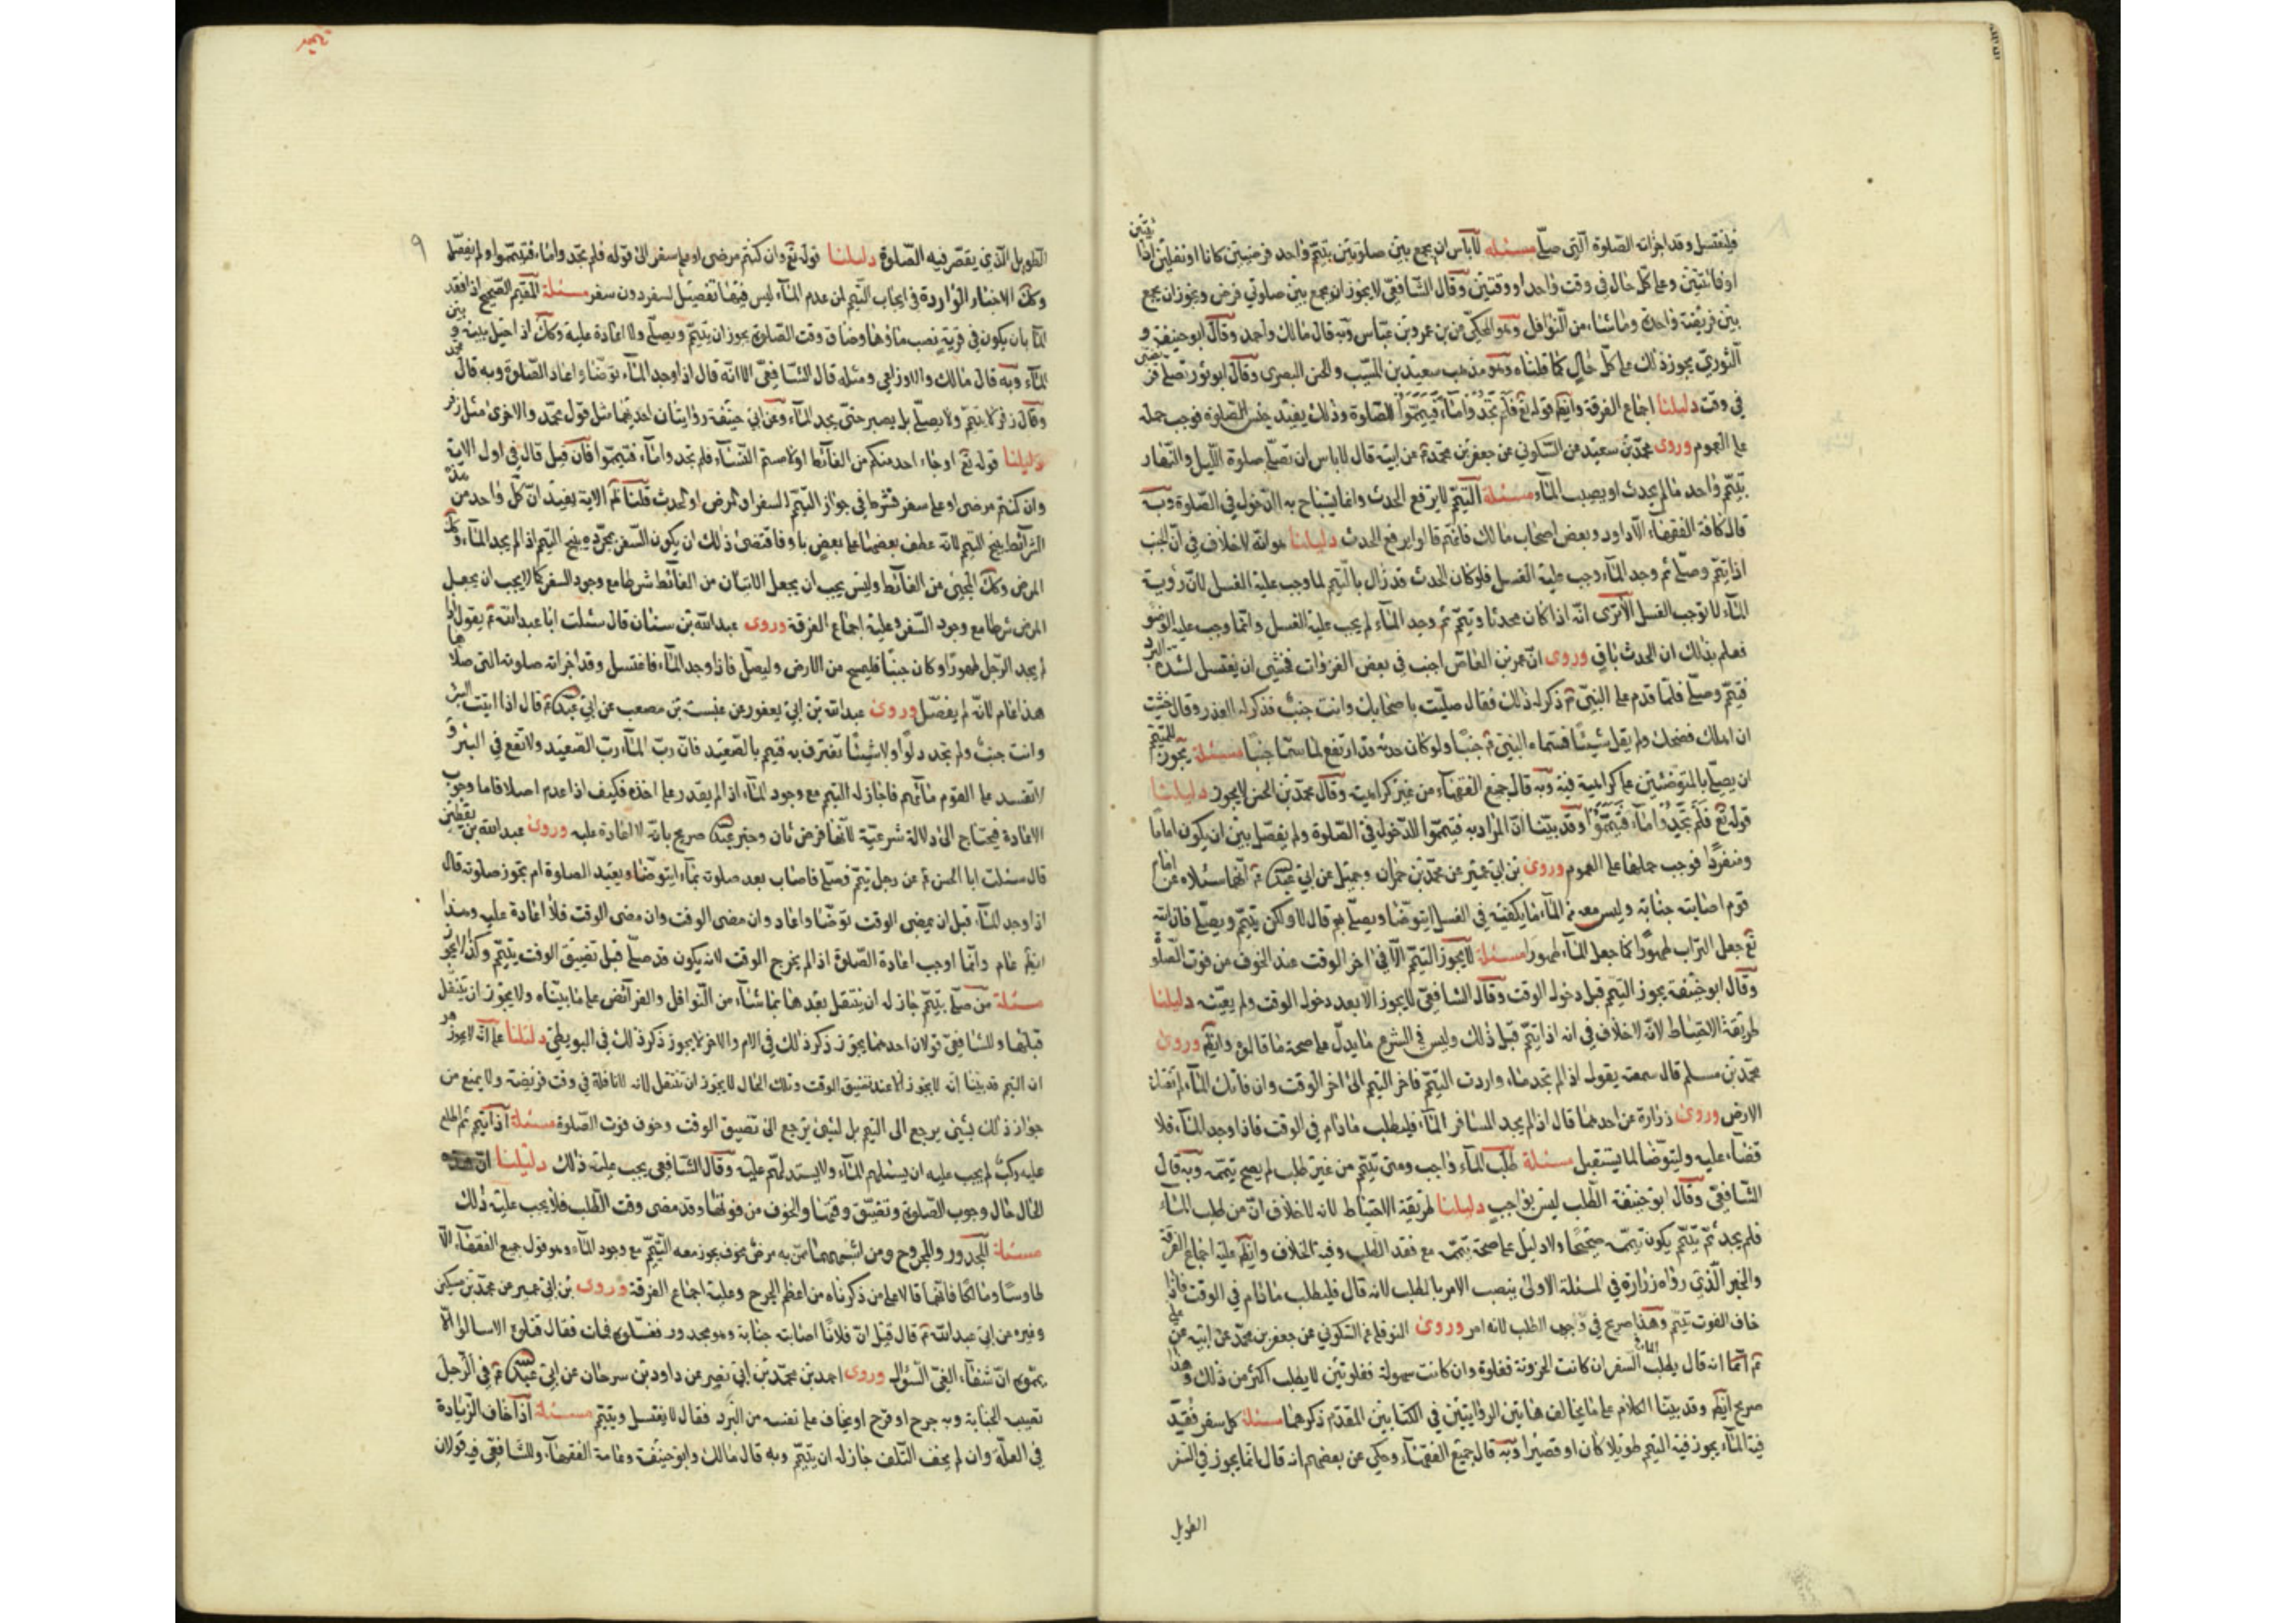 فليغتسل وقد اجزأته الصلوة التى صلّى مسئله لا باس ان يجمع بين صلوتين بتيمّم واحد فرضيتين كانا او نفلين اذا
او فائتتين وعلى كل حال فى وقت واحد او وقتين وقال الشافعى لا يجوز ان يجمع بين صلوتي فرض ويجوز ان يجمع
بين فريضة واحدة وما شاء من النوافل وهو المحكى عن بن عمر وبن عباس وبه قال مالك واحمد وقال ابو حنيفة و
الثورى يجوز ذلك على كل حال كما قلناه وهو مذهب سعيد بن المسيب والحسن البصرى وقال ابو ثور يصلى
فى وقت دليلنا اجماع الفرقة وايضا قوله تع فلم تجدوا ماء فتيمموا للصلوة وذلك يفيد جنس الصلوة فوجب حمله
على العموم وروى محمد بن سعيد عن السكوني عن جعفر بن محمد عن ابيه قال لا باس ان تصلى صلوة الليل والنهار
بتيمم واحد ما لم يحدث او يصيب الماء مسئلة التيمم لا يرفع الحدث وانما يستباح به الدخول فى الصلوة وبه
قال كافة الفقهاء الا داود وبعض اصحاب مالك فانهم قالوا يرفع الحدث دليلنا هو انه لا خلاف فى ان الجنب
اذا تيمم وصلى ثم وجد الماء وجب عليه الغسل فلو كان الحدث قد زال بالتيمم لما وجب عليه الغسل لان رؤية
الماء لا توجب الغسل الا ترى انه اذا كان محدثا وتيمم ثم وجد الماء لم يجب عليه الغسل وانما وجب عليه الوضو
فعلم بذلك ان الحدث باق وروى ان عمرو بن العاص اجنب فى بعض الغزوات فخشى ان يغتسل لشدة البرد
فتيمم وصلى فلما قدم على النبى ذكر له ذلك فقال صليت باصحابك وانت جنب فذكر له العذر وقال خشيت
ان اهلك فضحك ولم يقل شيئا فسماه النبى جنبا ولو كان حدثه قد ارتفع لما سماه جنبا مسئلة يجوز للمتيمم
ان يصلى بالمتوضئين على كراهية فيه وبه قال جميع الفقهاء من غير كراهية وقال محمد بن الحسن لا يجوز دليلنا
قوله تع فلم تجدوا ماء فتيمموا وقد بينا ان المراد به فتيمموا للدخول فى الصلوة ولم يفصل بين ان يكون اماما
ومنفردا فوجب حملها على العموم وروى بن ابى عمير عن محمد بن حمران وجميل عن ابى عبد الله انهما سئلاه عن امام
قوم اصابته جنابة وليس معه من الماء ما يكفيه فى الغسل ايتوضأ ويصلى بهم قال لا ولكن يتيمم ويصلى فان الله
تع جعل التراب طهورا كما جعل الماء طهورا مسئلة لا يجوز التيمم الا فى اخر الوقت عند الخوف من فوت الصلوة
وقال ابو حنيفة يجوز التيمم قبل دخول الوقت وقال الشافعى لا يجوز الا بعد دخول الوقت ولم يعينه دليلنا
طريقة الاحتياط لانه لا خلاف فى انه اذا تيمم قبل ذلك وليس فى الشرع ما يدل على صحة ما قالوه وايضا وروى
محمد بن مسلم قال سمعته يقول اذا لم تجد ماء واردت التيمم فاخر التيمم الى اخر الوقت وان فاتك الماء لم تفتك
الارض وروى زرارة عن احدهما قال اذا لم يجد المسافر الماء فليطلب ما دام فى الوقت فاذا وجد الماء فلا
قضاء عليه وليتوضأ لما يستقبل مسئلة طلب الماء واجب ومتى تيمم من غير طلب لم يصح تيممه وبه قال
الشافعى وقال ابو حنيفة الطلب ليس بواجب دليلنا طريقة الاحتياط لانه لا خلاف ان من طلب الماء
فلم يجد ثم تيمم يكون تيممه صحيحا ولا دليل على صحة تيممه مع فقد الطلب وفيه الخلاف وايضا عليه اجماع الفرقة
والخبر الذى رواه زرارة فى المسئلة الاولى يتضمن الامر بالطلب لانه قال فليطلب ما دام فى الوقت فاذا
خاف الفوت تيمم وهذا صريح فى وجوب الطلب لانه امر وروى النوفلى عن السكونى عن جعفر بن محمد عن ابيه عن على
انه قال يطلب الماء السفر ان كانت الحزونة فغلوة وان كانت سهولة فغلوتين لا يطلب اكثر من ذلك وهذا
صريح ايضا وقد بينا الكلام على ما يخالف هاتين الروايتين فى الكتابين المقدم ذكرهما مسئلة كل سفر فقد
فيه الماء يجوز فيه التيمم طويلا كان او قصيرا وبه قال جميع الفقهاء وحكى عن بعضهم انه قال انما يجوز فى السفر
الطويل
٩
الطويل الذى يقصر فيه الصلوة دليلنا قوله تع وان كنتم مرضى او على سفر الى قوله فلم تجدوا ماء فتيمموا ولم يفصل
وكك الاخبار الواردة فى ايجاب التيمم لمن عدم الماء ليس فيها تفصيل لسفر دون سفر مسئلة المقيم الصحيح اذا فقد
الماء بان يكون فى قرية نضب ماؤها وضاق وقت الصلوة يجوز ان يتيمم ويصلى ولا اعادة عليه وكك اذا حيل بينه وبين
الماء وبه قال مالك والاوزاعى ومثله قال الشافعى الا انه قال اذا وجد الماء توضأ واعاد الصلوة وبه قال محمد
وقال زفر لا يتيمم ولا يصلى بل يصبر حتى يجد الماء وعن ابى حنيفة روايتان احديهما مثل قول محمد والاخرى مثل زفر
دليلنا قوله تع او جاء احد منكم من الغائط او لامستم النساء فلم تجدوا ماء فتيمموا فان قيل قال فى اول الاية
وان كنتم مرضى او على سفر فشرط فى جواز التيمم السفر او المرض او الحدث قلنا الاية يفيد ان كل واحد من هذه
الشرائط يبيح التيمم لانه عطف بعضها على بعض باو فاقتضى ذلك ان يكون السفر بمجرده يبيح التيمم اذا لم يجد الماء وكك
المرض وكك المجيئ من الغائط وليس يجب ان يجعل الاتيان من الغائط شرطا مع وجود السفر كما لا يجب ان يجعل
المرض شرطا مع وجود السفر وعليه اجماع الفرقة وروى عبد الله بن سنان قال سئلت ابا عبد الله يقول اذا
لم يجد الرجل طهورا وكان جنبا فليمسح من الارض وليصل فاذا وجد الماء فاغتسل وقد اجزأته صلوته التى صلاها
هذا عام لانه لم يفصل وروى عبد الله بن ابى يعفور عن عنبسة بن مصعب عن ابى عبد الله قال اذا اتيت البئر
وانت جنب ولم تجد دلوا ولا شيئا تغترف به فتيمم بالصعيد فان رب الماء رب الصعيد ولا تقع فى البئر و
لا تفسد على القوم مائهم فاجاز له التيمم مع وجود الماء اذا لم يقدر على اخذه فكيف اذا عدم اصلا فاما وجوب
الاعادة فيحتاج الى دلالة شرعية لانها فرض ثان وخبر صريح بانه لا اعادة عليه وروى عبد الله بن يقطين
قال سئلت ابا الحسن عن رجل تيمم فصلى فاصاب بعد صلوته ماء ايتوضأ ويعيد الصلوة ام تجوز صلوته قال
اذا وجد الماء قبل ان يمضى الوقت توضأ واعاد وان مضى الوقت وان مضى الوقت فلا اعادة عليه وهذا
ايضا عام وانما اوجب اعادة الصلوة اذا لم يخرج الوقت لانه يكون قد صلى قبل تضييق الوقت بتيمم وكذا لا يجوز
مسئلة من صلى بتيمم جاز له ان يتنفل بعدها بما شاء من النوافل والفرائض على ما بيناه ولا يجوز ان يتنفل
قبلها وللشافعى قولان احدهما يجوز ذكر ذلك فى الام والاخر لا يجوز ذكر ذلك فى البويطى دليلنا على انه لا يجوز هو
ان التيمم قد بينا انه لا يجوز الا عند تضيق الوقت وتلك الحال لا يجوز ان يتنفل لانه لا نافلة فى وقت فريضة ولا يمنع من
جواز ذلك بشئ يرجع الى التيمم بل لشئ يرجع الى تضيق الوقت وخوف فوت الصلوة مسئلة اذا تيمم ثم طلع
عليه ركب لم يجب عليه ان يسئلهم الماء ولا يستدلهم عليه وقال الشافعى يجب عليه ذلك دليلنا ان هذه
الحال حال وجوب الصلوة وتضيق وقتها والخوف من فوتها وقد مضى وقت الطلب فلا يجب عليه ذلك
مسئلة المجدور والمجروح ومن اشبههما ممن به مرض مخوف يجوز معه التيمم مع وجود الماء وهو قول جميع الفقهاء الا
طاوسا ومالكا فانهما قالا على من ذكرناه من اعظم الجرح وعليه اجماع الفرقة وروى بن ابى عمير عن محمد بن مسكين
وغيره عن ابى عبد الله قال قيل ان فلانا اصابته جنابة وهو مجدور فغسلوه فمات فقال قتلوه الا سالوا الا
يمموه ان شفاء العى السؤال وروى احمد بن محمد بن ابى نصير عن داود بن سرحان عن ابى عبد الله فى الرجل
تصيب الجنابة وبه جرح او قرح او يخاف على نفسه من البرد فقال لا يغتسل ويتيمم مسئلة اذا خاف الزيادة
فى العلة وان لم يخف التلف جاز له ان يتيمم وبه قال مالك وابو حنيفة وعامة الفقهاء وللشافعى فيه قولان